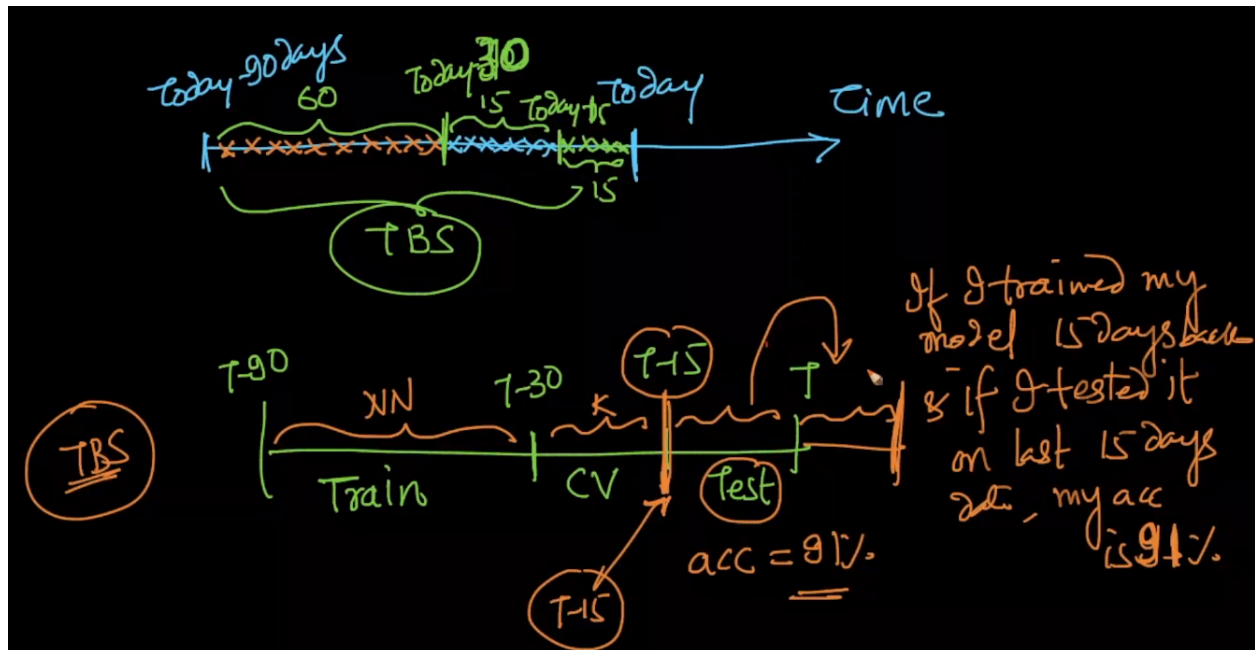 Today-90days
60
Today-30
15
Today-15
Today
Time
15
TBS
TBS
T-90
NN
T-30
K
T-15
T
Train
CV
Test
T-15
acc = 91%.
If I trained my
model 15 days back
& if I tested it
on last 15 days
data, my acc
is 91%.